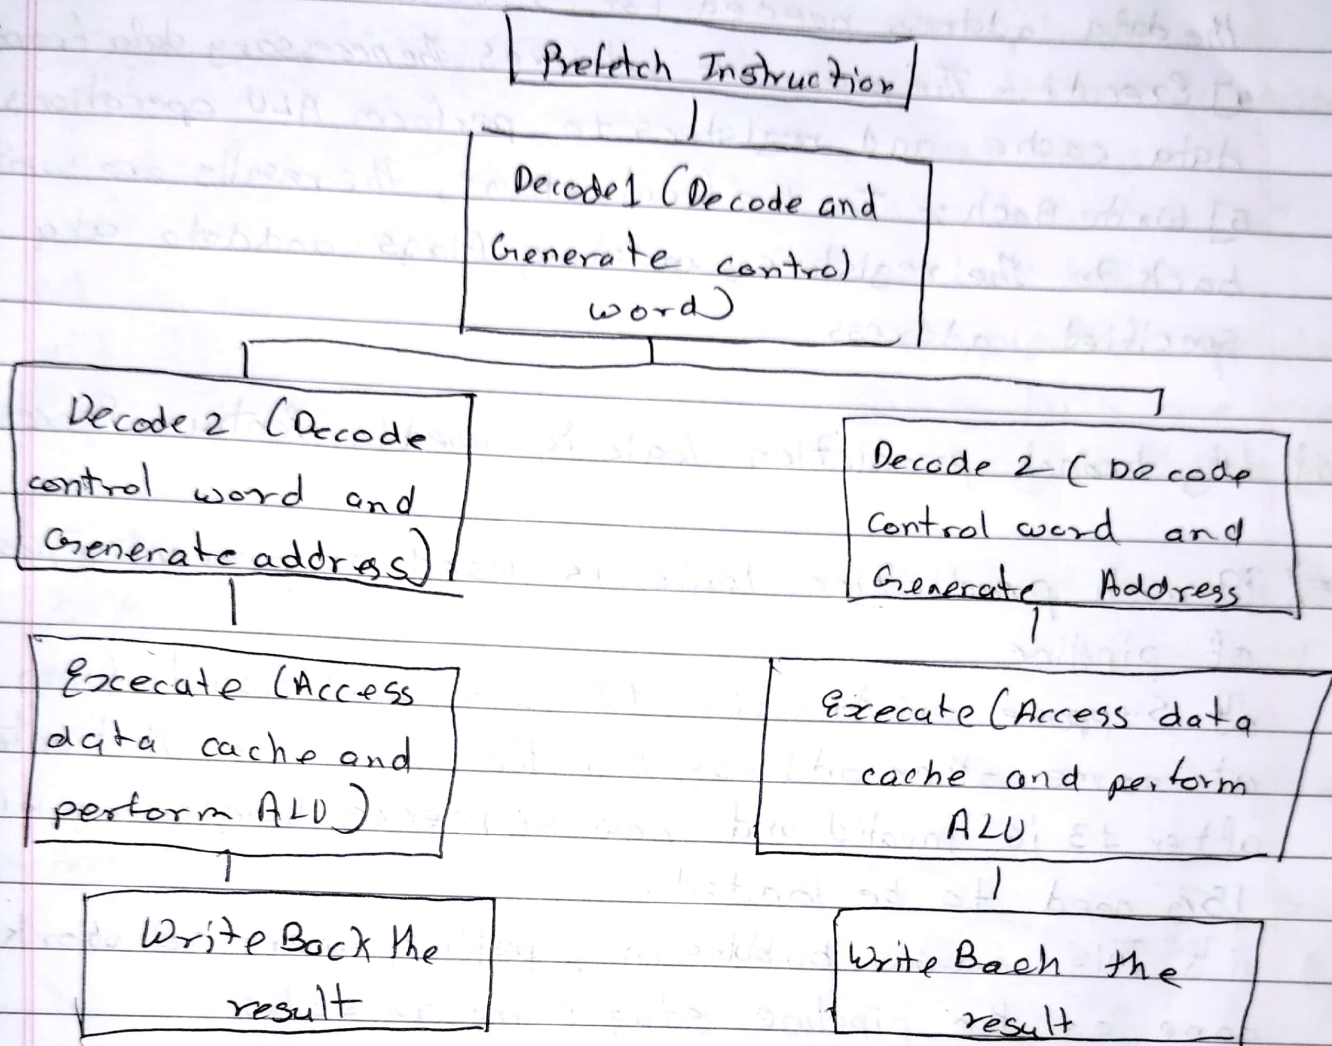 Prefetch Instruction
Decode1 (Decode and
Generate control
word)
Decode 2 (Decode
control word and
Generate address)
Decode 2 (Decode
control word and
Generate Address
Excecate (Access
data cache and
perform ALU)
Execate (Access data
cache and perform
ALU
Write Back the
result
Write Back the
result